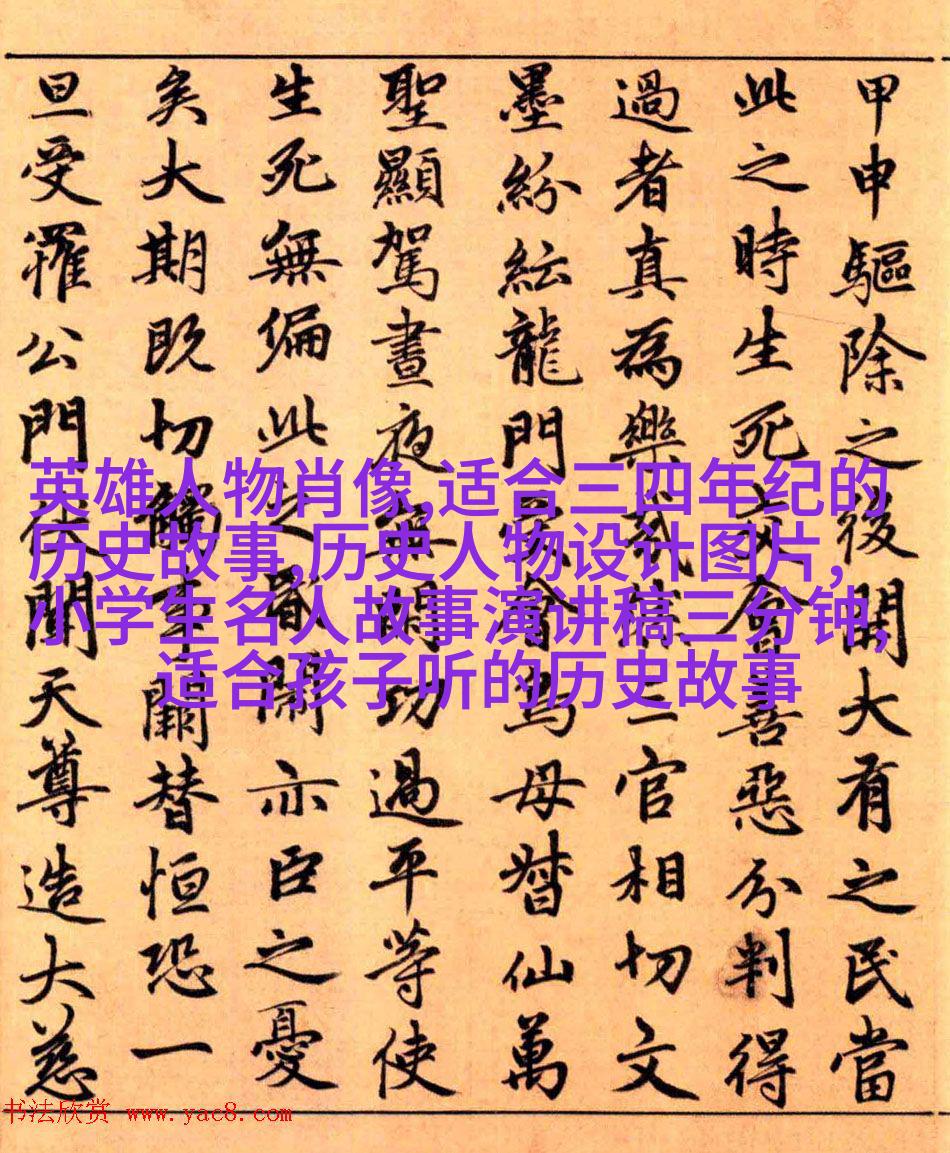 甲申驅除之後開大有之民當
此之時生死會善惡分判得
過者真為樂三官相切文
墨紛紜龍門為母督仙萬
聖顯駕晝夜功過平等使
生死無偏此之亦臣之憂
矣大期既切觸事闕替恒恐一
旦受罹公門伏聞天尊造大慈
英雄人物肖像,适合三四年纪的
历史故事,历史人物设计图片,
小学生名人故事演讲稿三分钟,
适合孩子听的历史故事
书法欣赏 www.yac8.com